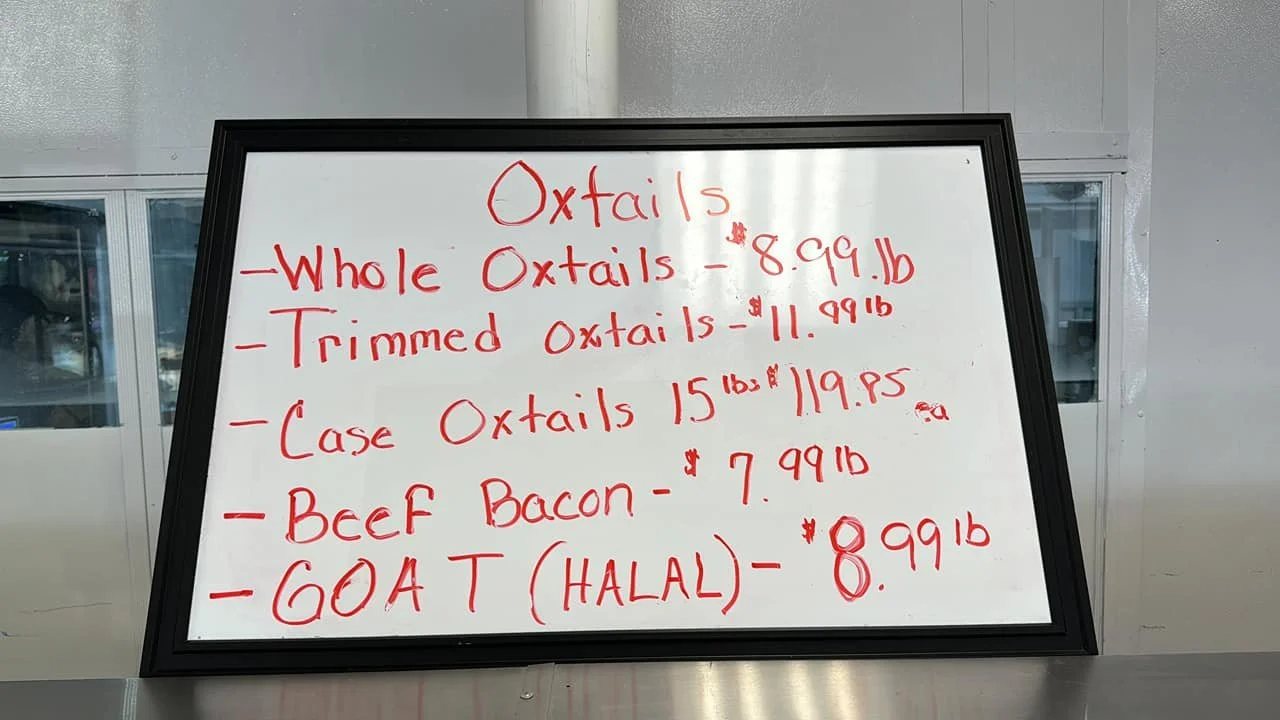 Oxtails
- Whole Oxtails - $8.99.lb
- Trimmed Oxtails - $11.99 lb
- Case Oxtails 15 lbs $119.85 ea
- Beef Bacon - $7.99 lb
- GOAT (HALAL) - $8.99 lb